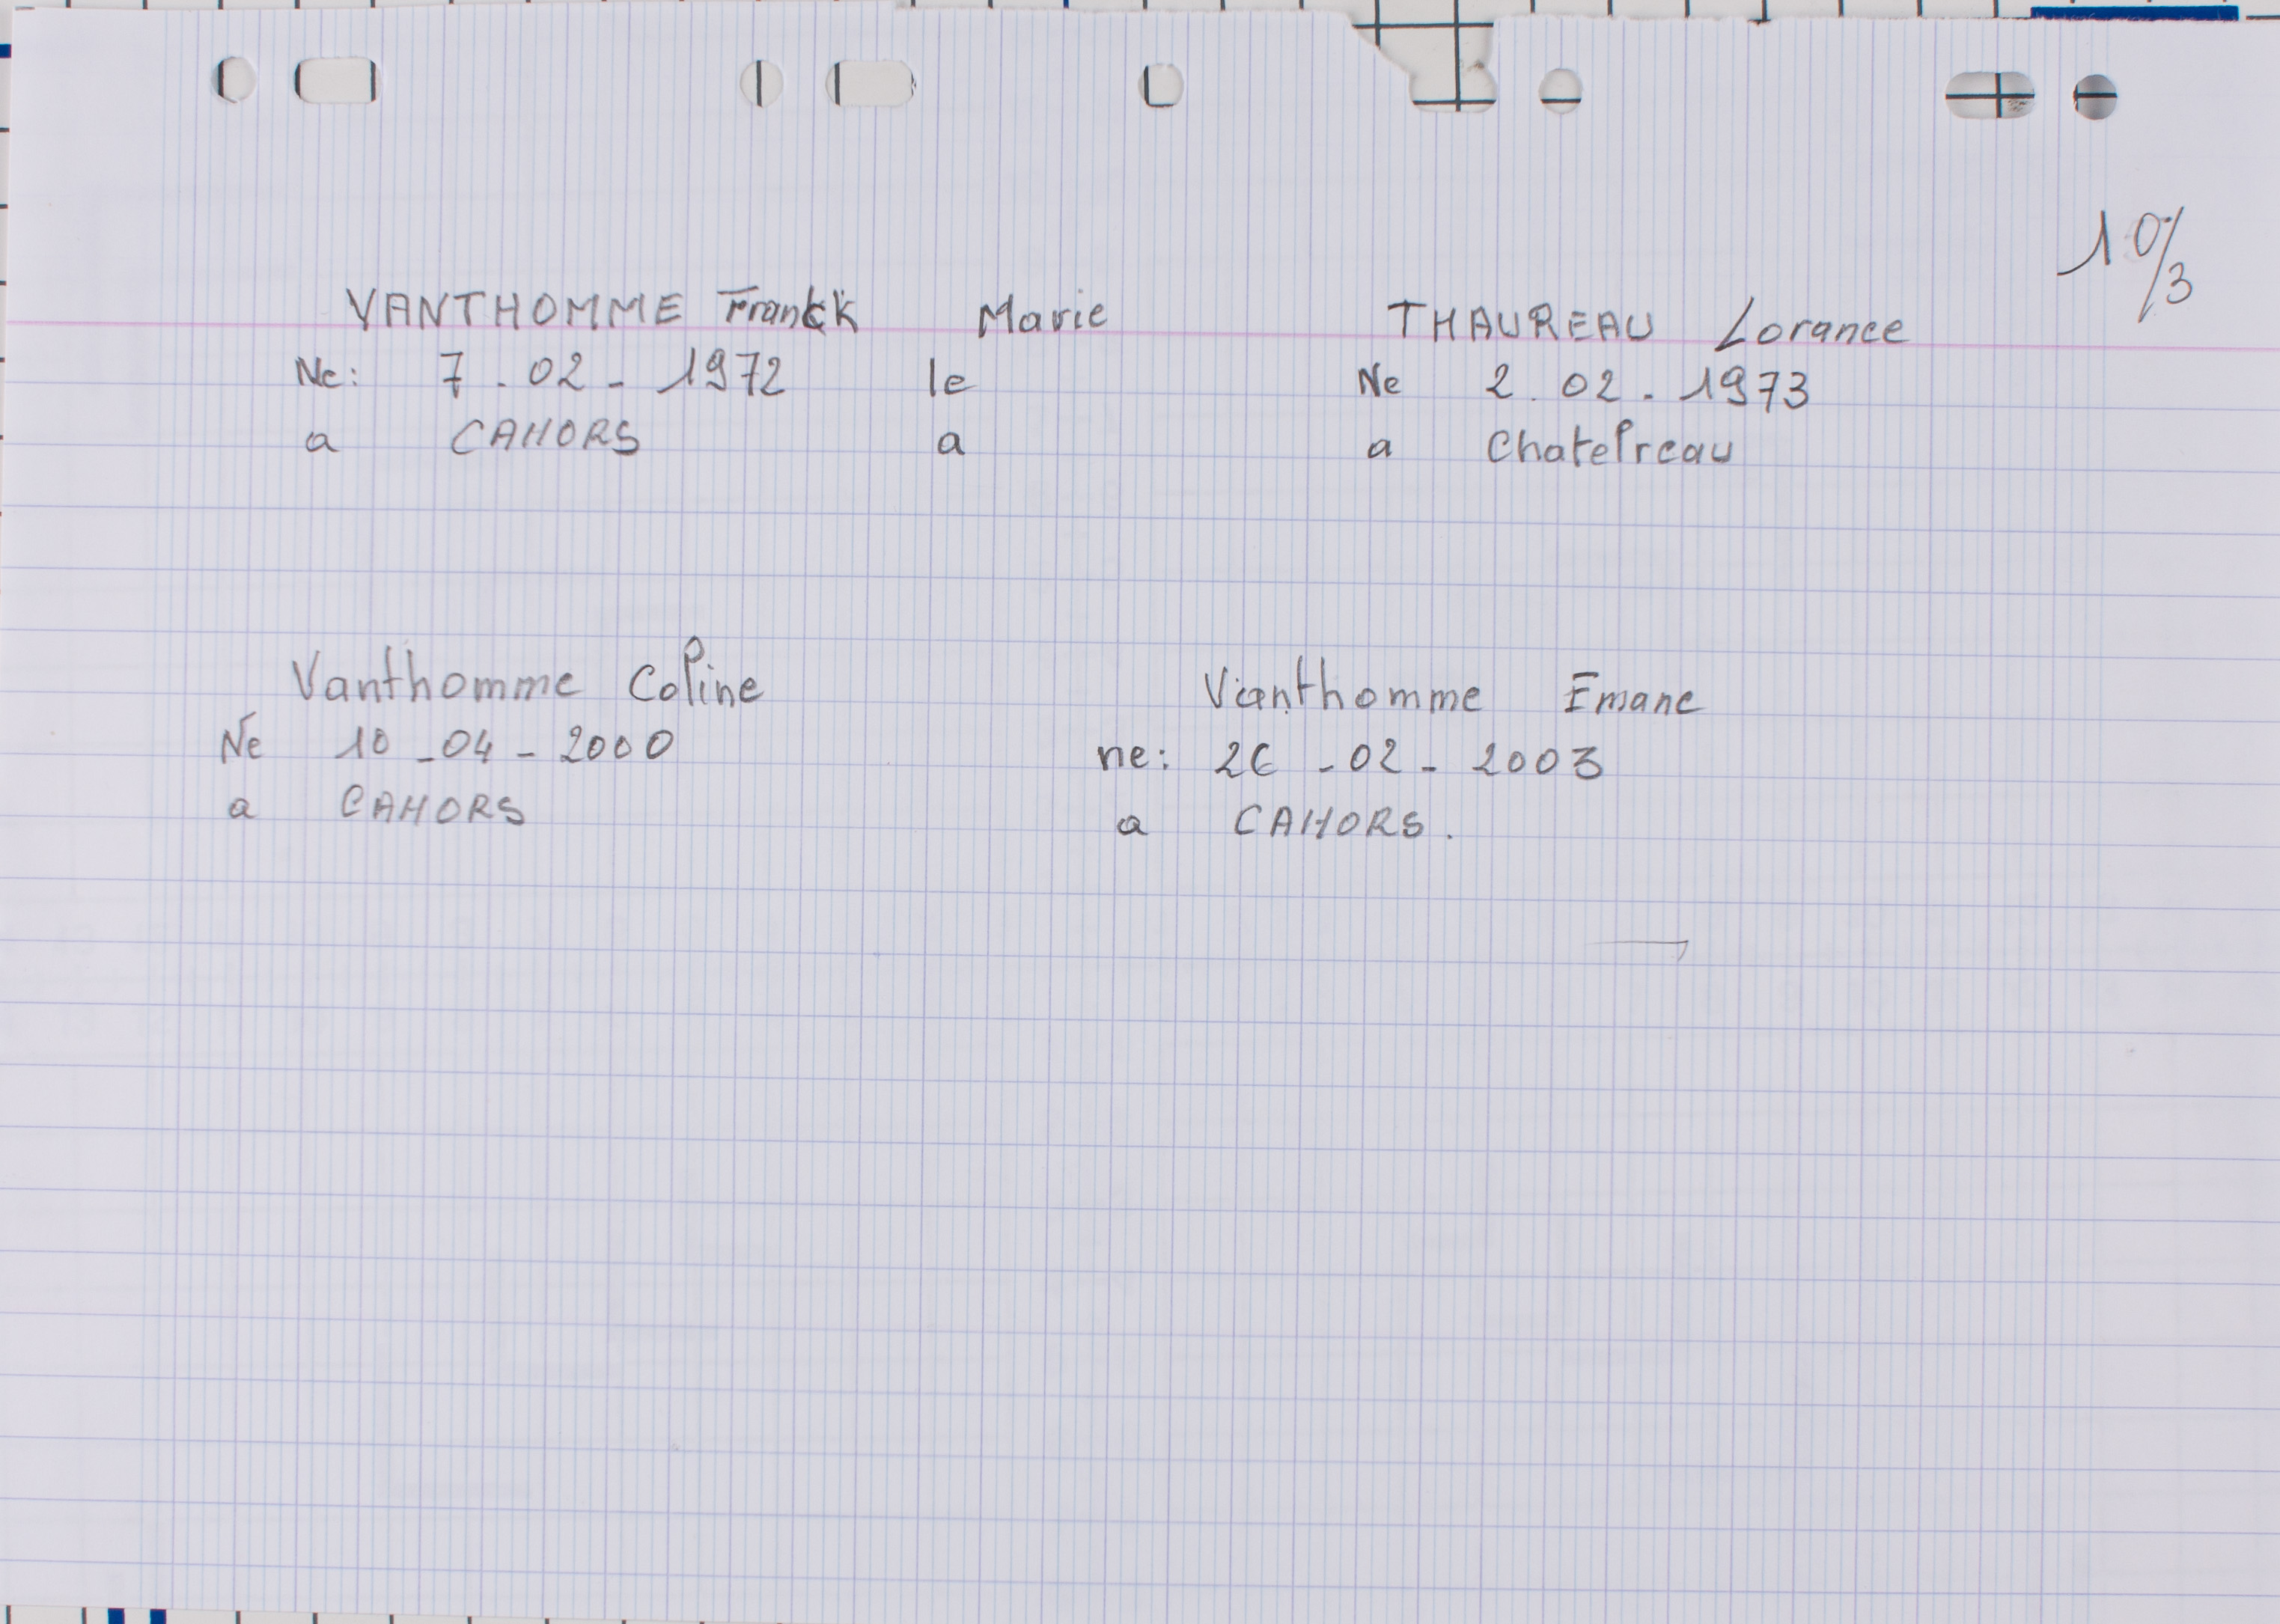 10/3
VANTHOMME Franck Marie THAUREAU Lorance
Ne: 7-02-1972 le Ne 2.02.1973
a CAHORS a a Chatelreau
Vanthomme Coline Vanthomme Emane
Ne 10-04-2000 ne: 26-02-2003
a CAHORS a CAHORS.